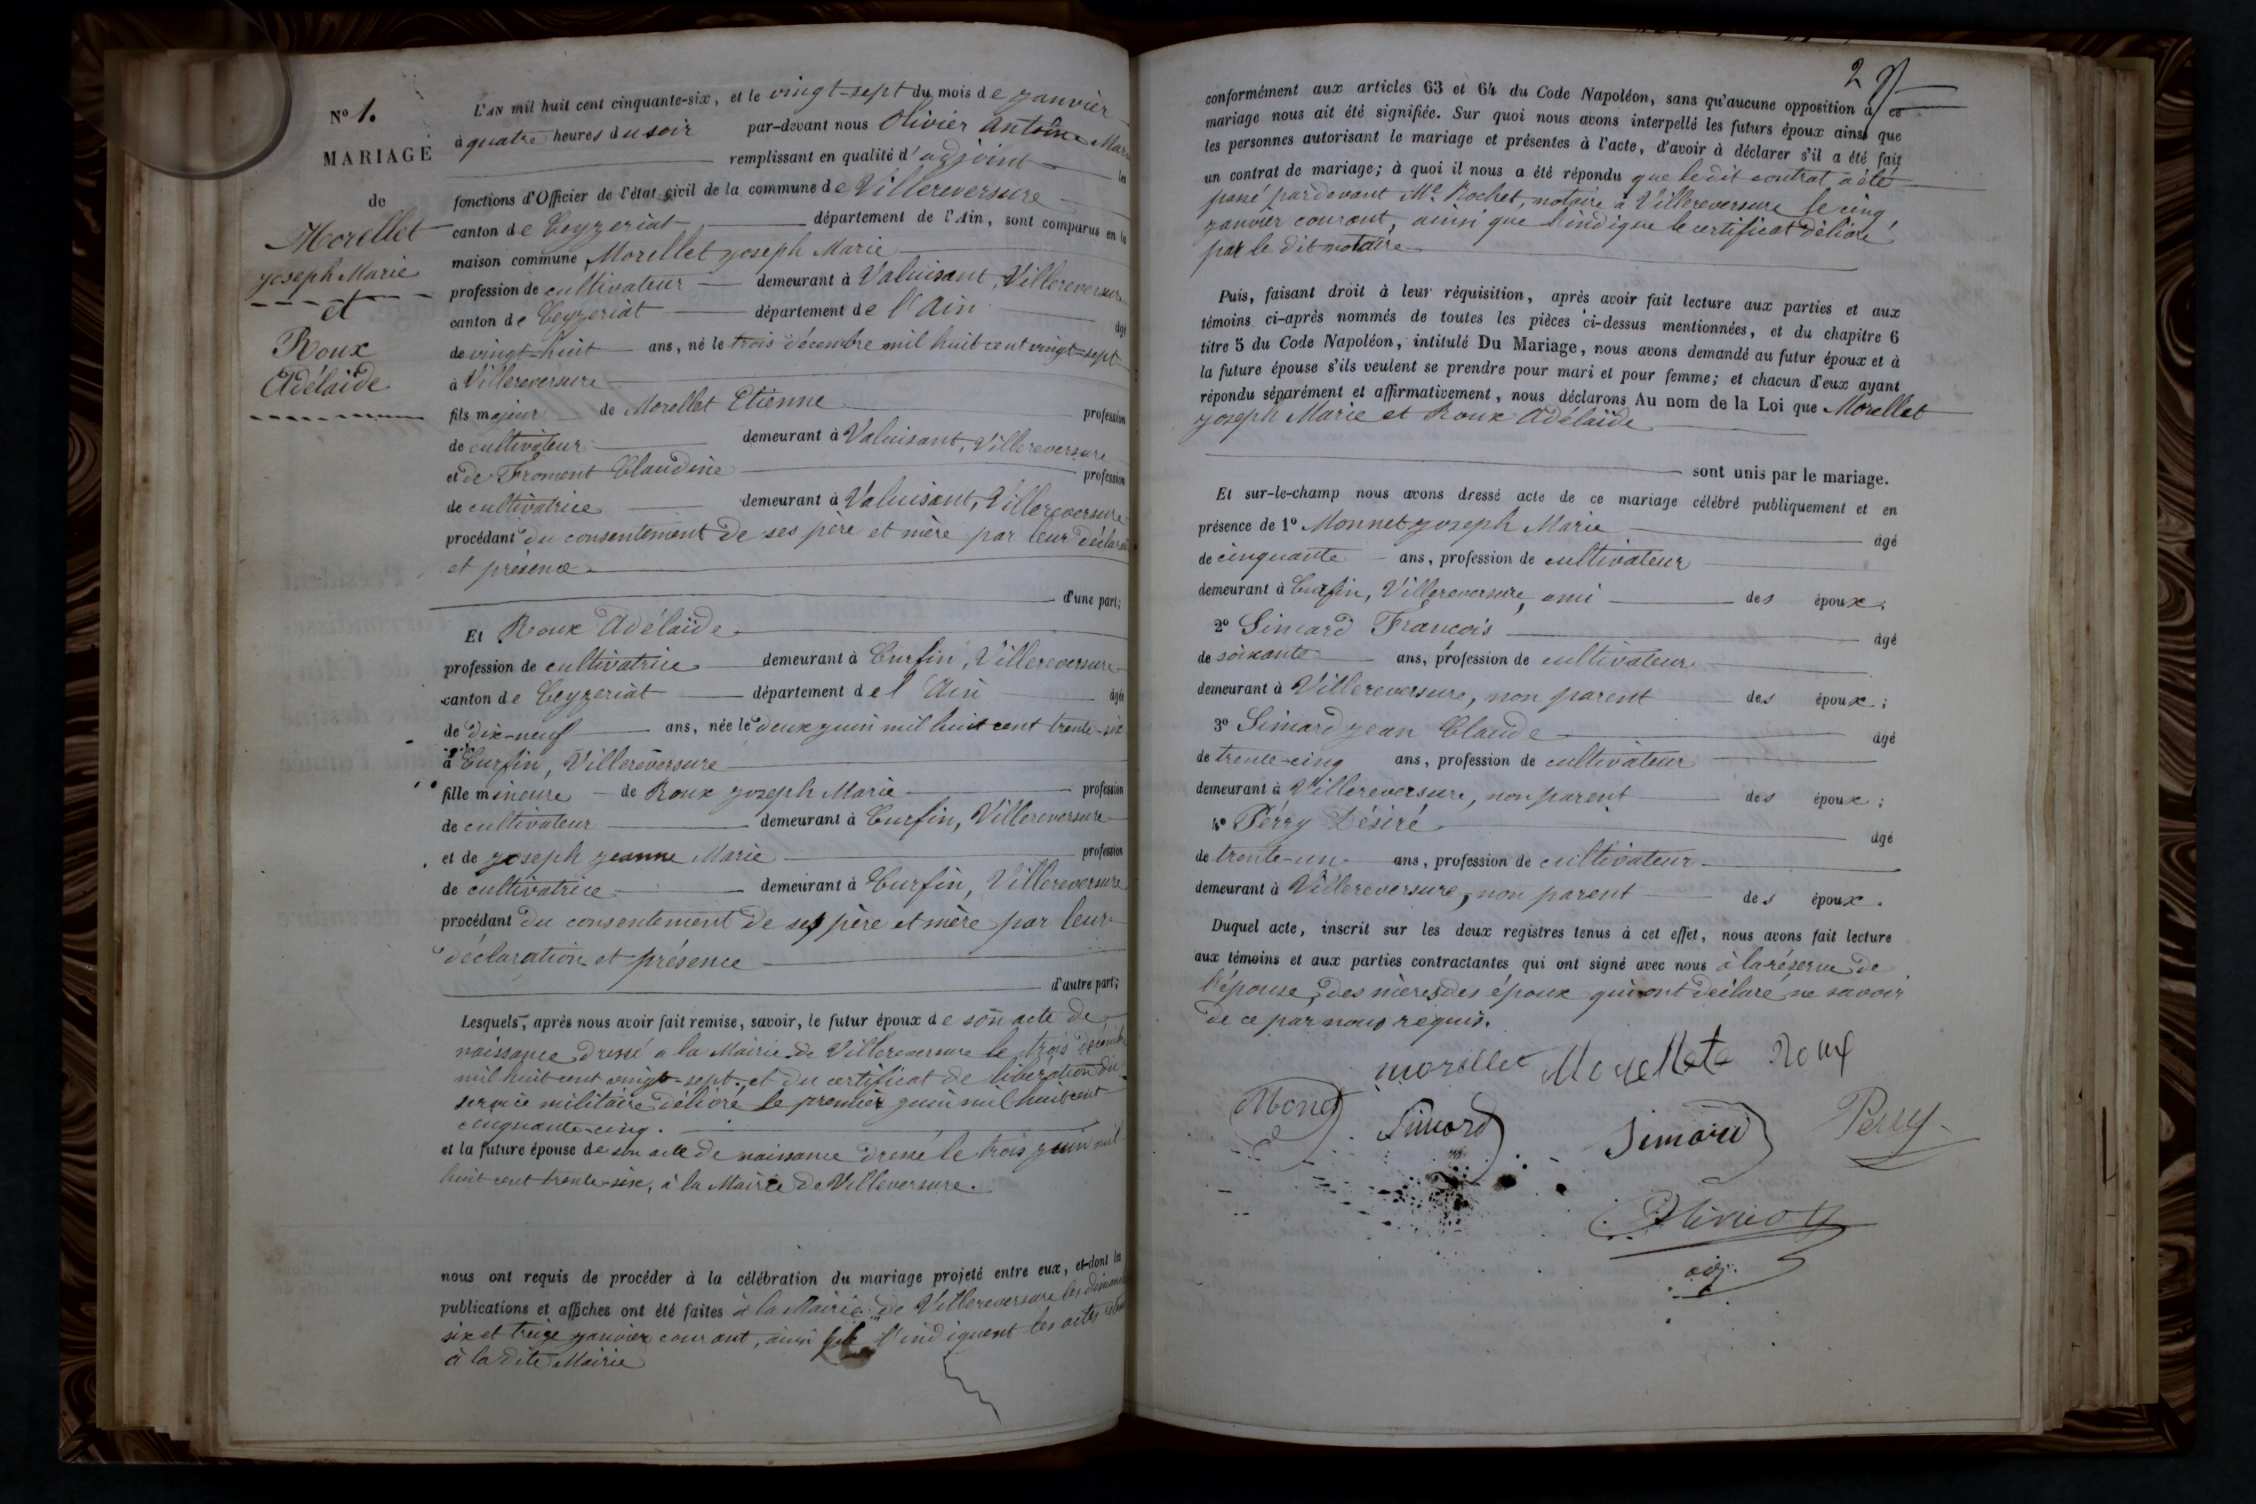 N° 1.
MARIAGE
de
Morellet
joseph Marie
et
Roux
Adélaïde
L'AN mil huit cent cinquante-six, et le vingt-sept du mois de janvier
à quatre heures du soir par-devant nous Olivier Antoine Marie
remplissant en qualité d'adjoint les
fonctions d'Officier de l'état civil de la commune de Villereversure
canton de Ceyzeriat département de l'Ain, sont comparus en la
maison commune, Morellet joseph Marie
profession de cultivateur demeurant à Valuisant, Villereversure
canton de Ceyzeriat département de l'Ain âgé
de vingt-huit ans, né le trois décembre mil huit cent vingt-sept
à Villereversure
fils majeur de Morellet Etienne profession
de cultivateur demeurant à Valuisant, Villereversure
et de Froment Claudine profession
de cultivatrice demeurant à Valuisant, Villereversure
procédant du consentement de ses père et mère par leur déclaration
et présence
d'une part;
Et Roux Adélaïde
profession de cultivatrice demeurant à Curfin, Villereversure
canton de Ceyzeriat département de l'Ain âgée
de dix-neuf ans, née le deux juin mil huit cent trente-six
à Curfin, Villereversure
fille mineure de Roux joseph Marie profession
de cultivateur demeurant à Curfin, Villereversure
et de joseph jeanne Marie profession
de cultivatrice demeurant à Curfin, Villereversure
procédant du consentement de ses père et mère par leur
déclaration et présence
d'autre part;
Lesquels, après nous avoir fait remise, savoir, le futur époux de son acte de
naissance dressé a la Mairie de Villereversure le trois décembre
mil huit cent vingt-sept, et du certificat de libération du
service militaire délivré le premier juin mil huit cent
cinquante-cinq.
et la future épouse de son acte de naissance dressé le trois juin mil
huit cent trente-six, à la Mairie de Villeversure.
nous ont requis de procéder à la célébration du mariage projeté entre eux, et dont les
publications et affiches ont été faites à la Mairie de Villereversure les dimanches
six et treize janvier courant, ainsi que l'indiquent les actes
à la dite Mairie
2
conformément aux articles 63 et 64 du Code Napoléon, sans qu'aucune opposition à ce
mariage nous ait été signifiée. Sur quoi nous avons interpellé les futurs époux ainsi que
les personnes autorisant le mariage et présentes à l'acte, d'avoir à déclarer s'il a été fait
un contrat de mariage; à quoi il nous a été répondu que le dit contrat a été
passé pardevant Me. Rochet, notaire à Villereversure le cinq
janvier courant, ainsi que l'indique le certificat délivré
par le dit notaire
Puis, faisant droit à leur réquisition, après avoir fait lecture aux parties et aux
témoins ci-après nommés de toutes les pièces ci-dessus mentionnées, et du chapitre 6
titre 5 du Code Napoléon, intitulé Du Mariage, nous avons demandé au futur époux et à
la future épouse s'ils veulent se prendre pour mari et pour femme; et chacun d'eux ayant
répondu séparément et affirmativement, nous déclarons Au nom de la Loi que Morellet
joseph Marie et Roux Adélaïde
sont unis par le mariage.
Et sur-le-champ nous avons dressé acte de ce mariage célébré publiquement et en
présence de 1° Monnet joseph Marie âgé
de cinquante ans, profession de cultivateur
demeurant à Curfin, Villereversure, ami des époux;
2° Simard François âgé
de soixante ans, profession de cultivateur
demeurant à Villereversure, non parent des époux;
3° Simard jean Claude âgé
de trente-cinq ans, profession de cultivateur
demeurant à Villereversure, non parent des époux;
4° Pérry Désiré âgé
de trente-un ans, profession de cultivateur
demeurant à Villereversure, non parent des époux.
Duquel acte, inscrit sur les deux registres tenus à cet effet, nous avons fait lecture
aux témoins et aux parties contractantes qui ont signé avec nous à la réserve de
l'épouse, des mères des époux qui ont déclaré ne savoir
de ce par nous requis.
morellet Morellet Roux
Monet Simard Simard Perry
Olivier
adj.